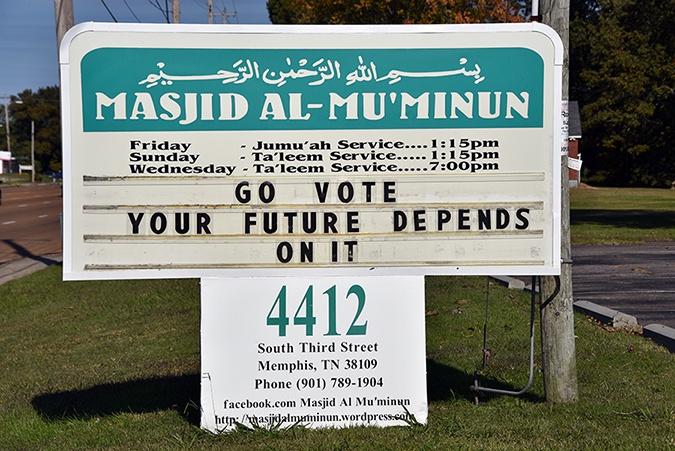 بسم الله الرحمن الرحيم
MASJID AL-MU'MINUN
Friday - Jumu'ah Service....1:15pm
Sunday - Ta'leem Service....1:15pm
Wednesday - Ta'leem Service....7:00pm
GO VOTE
YOUR FUTURE DEPENDS
ON IT
4412
South Third Street
Memphis, TN 38109
Phone (901) 789-1904
facebook.com Masjid Al Mu'minun
http://masjidalmuminun.wordpress.com